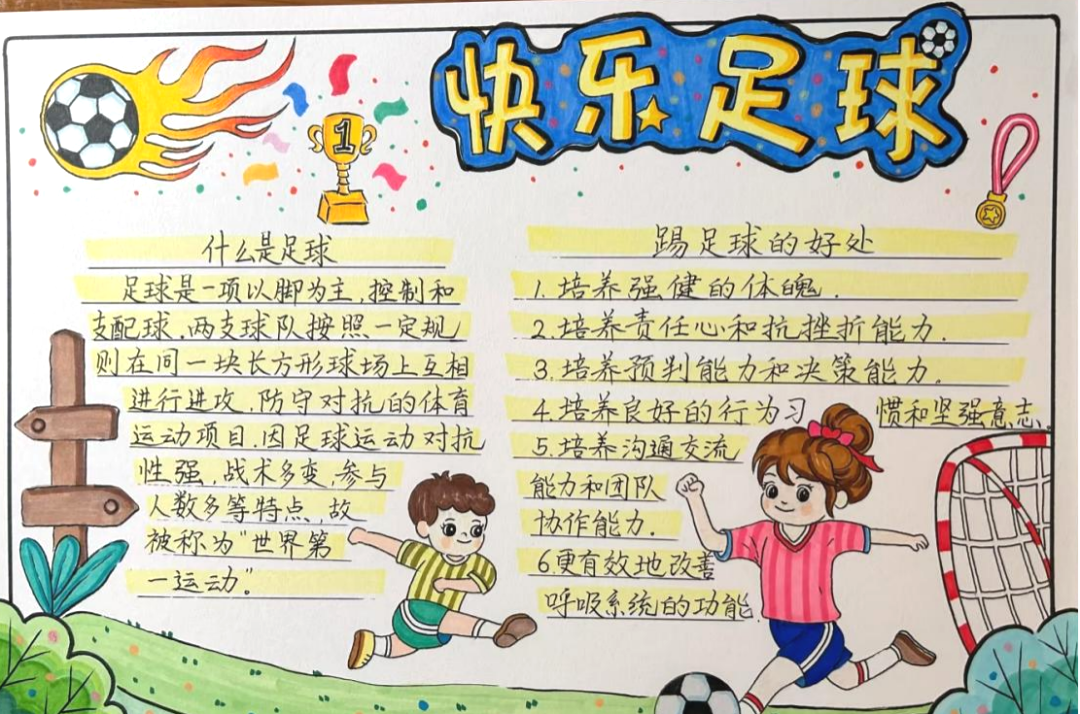 快乐足球
1
什么是足球
足球是一项以脚为主,控制和
支配球,两支球队按照一定规
则在同一块长方形球场上互相
进行进攻,防守对抗的体育
运动项目,因足球运动对抗
性强,战术多变,参与
人数多等特点,故
被称为"世界第
一运动"。
踢足球的好处
1.培养强健的体魄.
2.培养责任心和抗挫折能力.
3.培养预判能力和决策能力.
4.培养良好的行为习惯和坚强意志.
5.培养沟通交流
能力和团队
协作能力.
6更有效地改善
呼吸系统的功能.